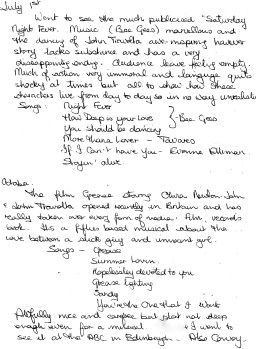 July 1st
Went to see the much publicised "Saturday
Night Fever. Music (Bee Gees) marvellous and
the dancing of John Travolta awe-inspiring however
story lacks substance and has a very
disappointing ending. Audience leave feeling empty.
Much of action very immoral and language quite
shocking at times but all to show how these
characters live from day to day so in no way unrealistic
Songs: Night Fever
How Deep is your Love - Bee Gees
You should be dancing
More than a Lover - Tavares
If I Can't have You - Evonne Elliman
Stayin' alive.
October.
The film Grease starring Olivia Newton-John
& John Travolta opened recently in Britain and has
really taken over every form of media. Film, records
book. Its a fifties based musical about the
love between a slick guy and innocent girl.
Songs - Grease
Summer Lovin.
Hopelessly devoted to you
Grease Lighting
Sandy
You're the One that I Want
nice and but plot not deep
enough even for a musical I went to
see it at the ABC in Edinburgh. Also